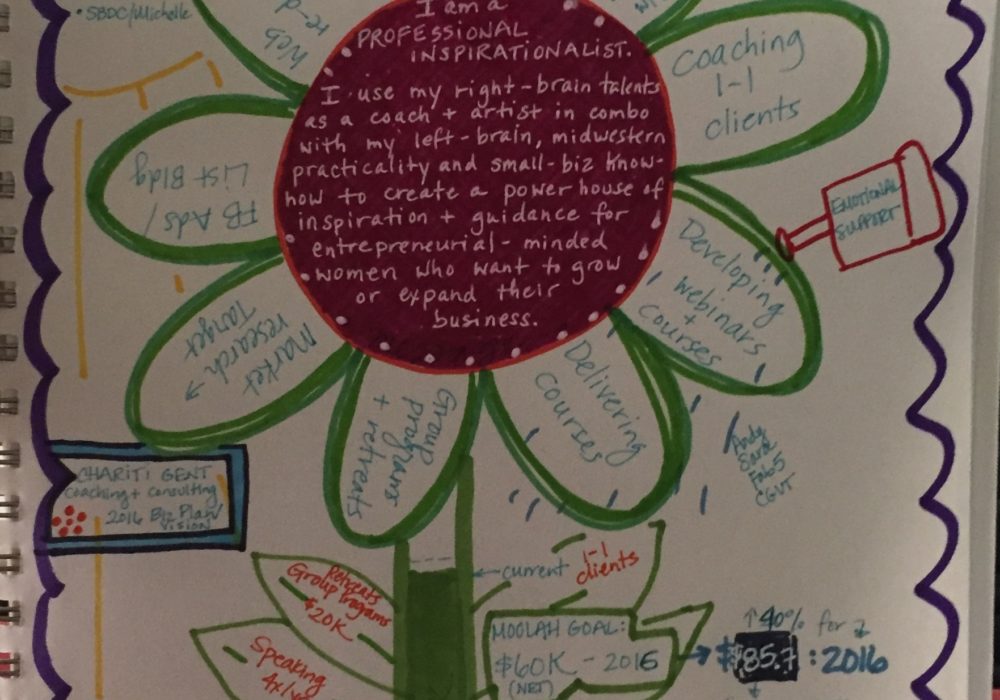 • SBDC/Michelle
Web
re-d
I am a
PROFESSIONAL
INSPIRATIONALIST.
I use my right-brain talents
as a coach + artist in combo
with my left-brain, midwestern
practicality and small-biz know-
how to create a powerhouse of
inspiration + guidance for
entrepreneurial-minded
women who want to grow
or expand their
business.
Coaching
1-1
clients
EMOTIONAL
SUPPORT
Developing
webinars
+
courses
Delivering
courses
Group
programs
+ retreats
Market
research →
Target
FB Ads/
List Bldg
Andy
Sara
Fab 5
CGVT
CHARITI GENT
Coaching + Consulting
2016 Biz Plan/
VISION
Retreats
Group Programs
$20K
Speaking
←current
1-1
clients
MOOLAH GOAL:
$60K - 2016
(NET)
↑40% for
→ $85.7 : 2016